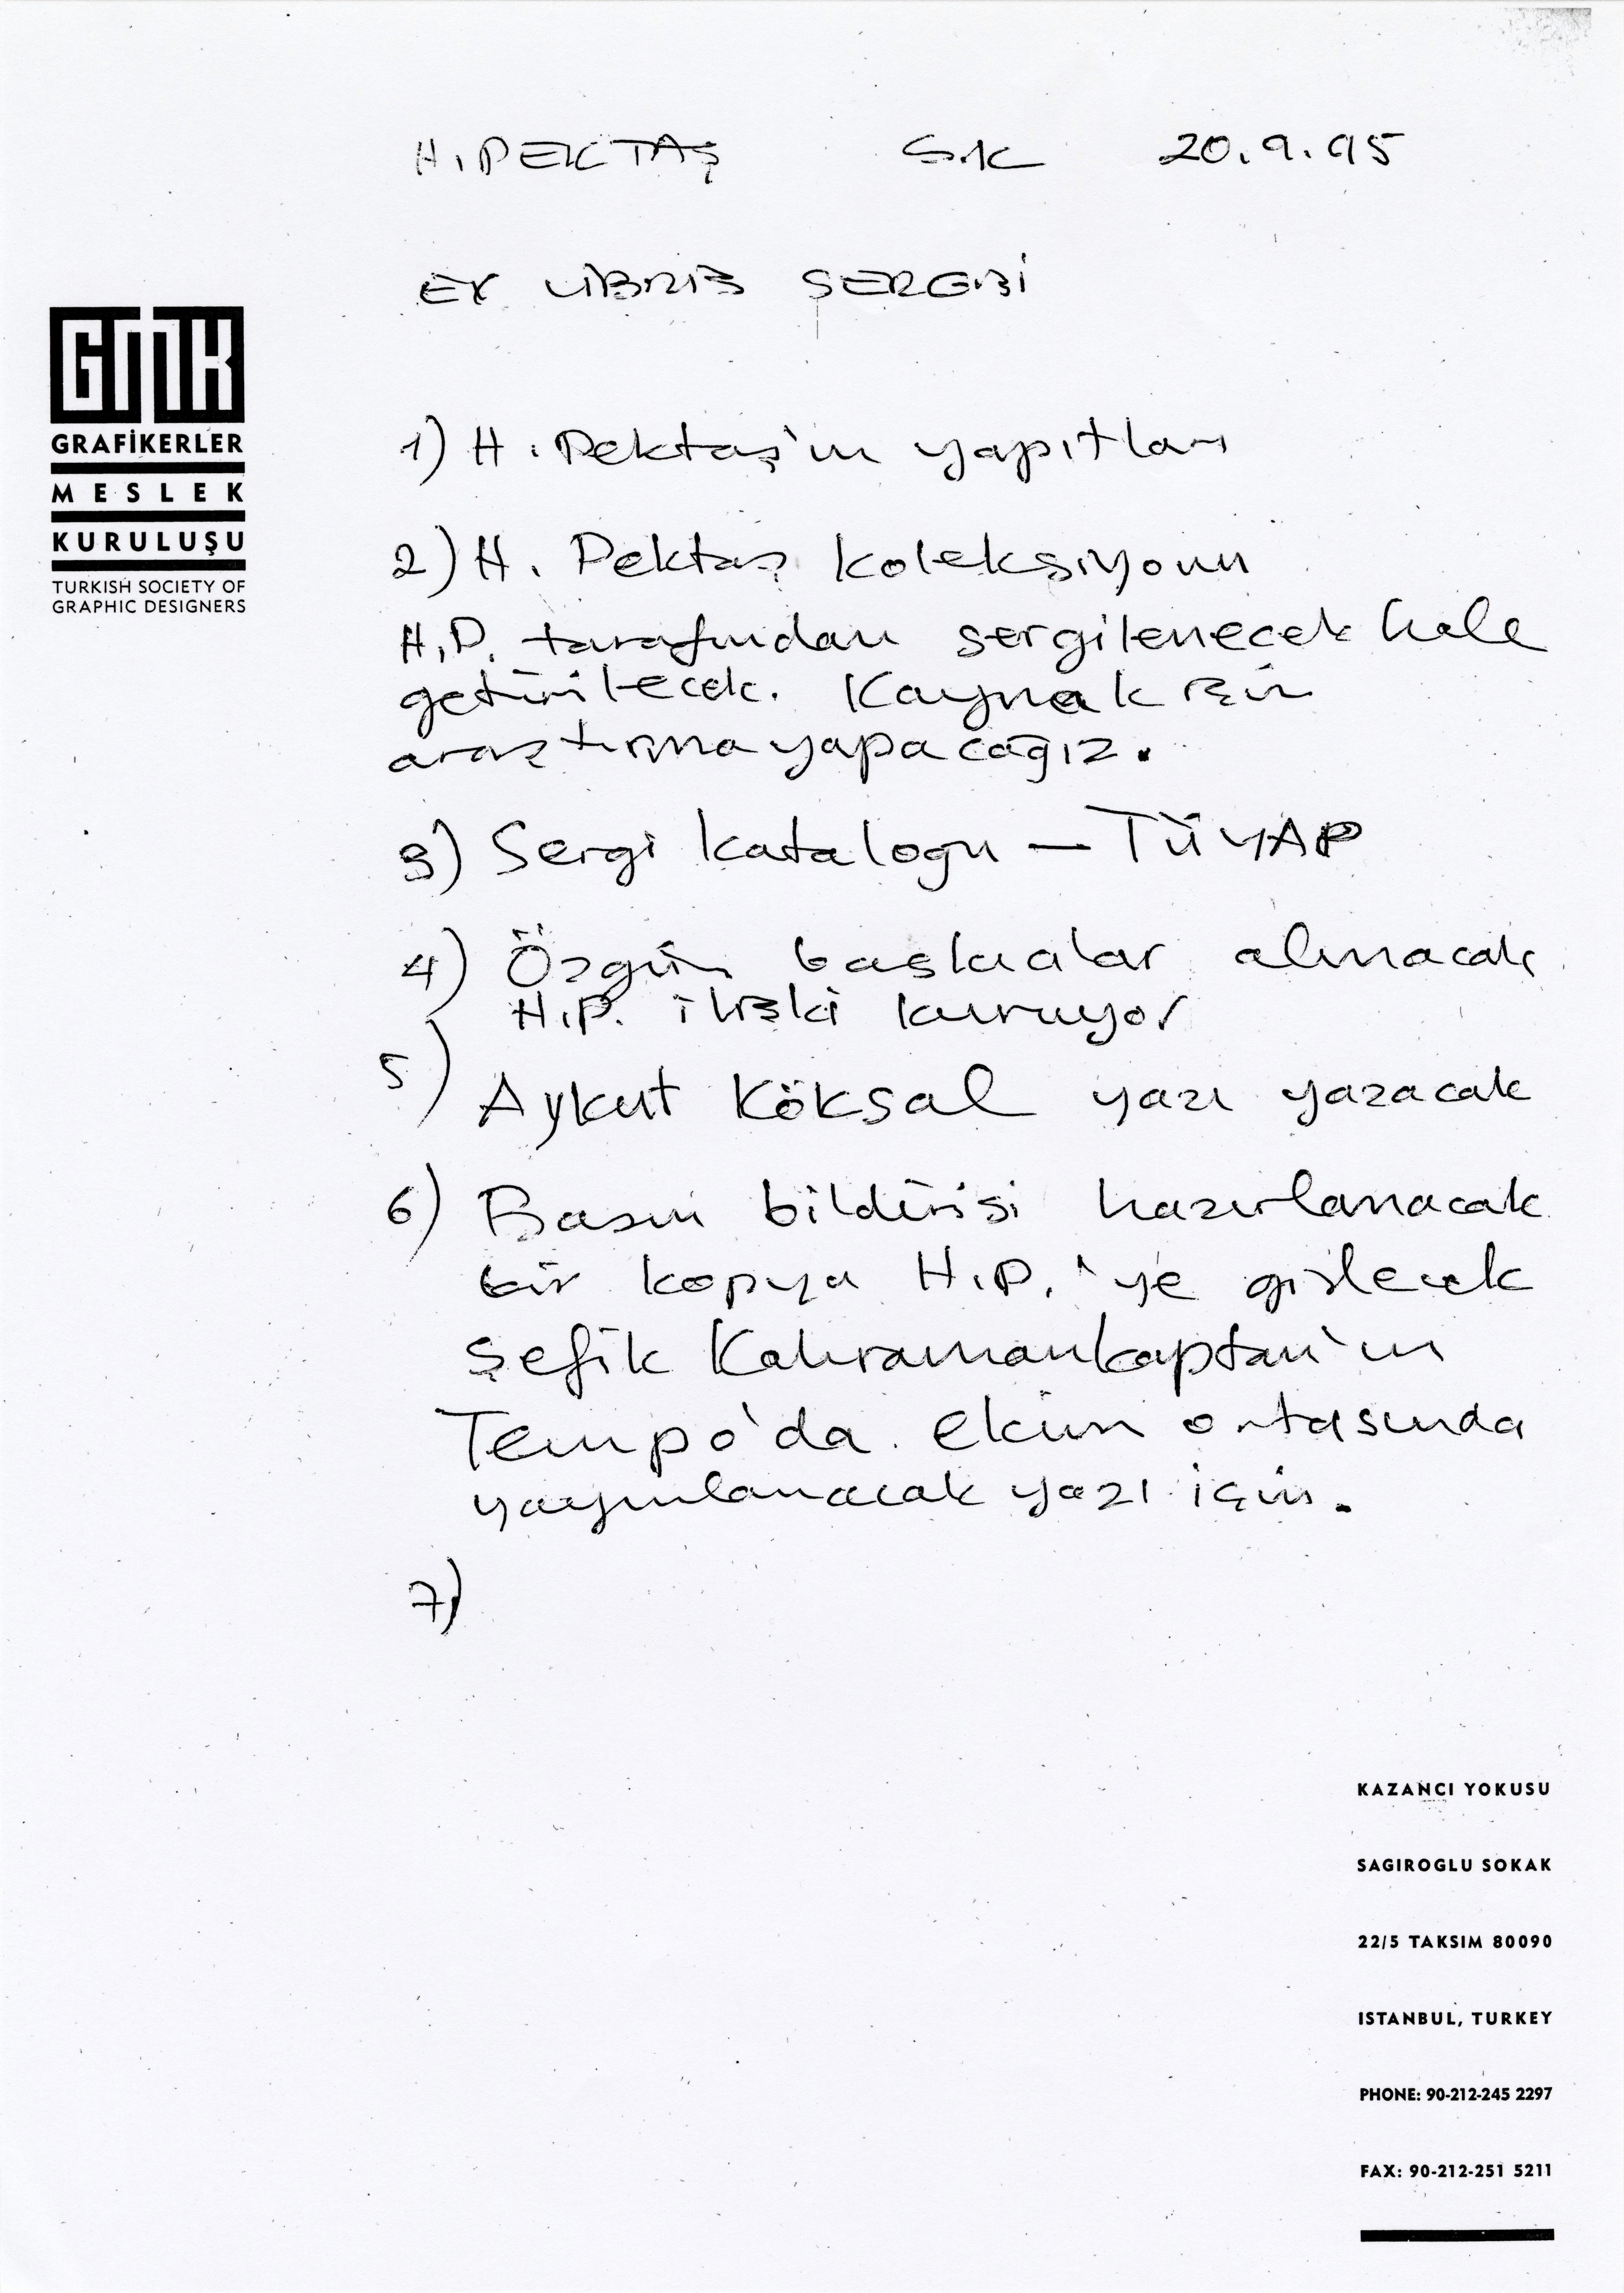 H. PEKTAŞ S.K 20.9.95
EX LİBRİS SERGİSİ
GMK
GRAFİKERLER
MESLEK
KURULUŞU
TURKISH SOCIETY OF
GRAPHIC DESIGNERS
1) H. Pektaş'ın yapıtları
2) H. Pektaş koleksiyonu
H.P. tarafından sergilenecek hale
getirilecek. Kaynak için
araştırma yapacağız.
3) Sergi kataloğu — TÜYAP
4) Özgün baskıcılar alınacak
H.P. ilişki kuruyor
5) Aykut Köksal yazı yazacak
6) Basın bildirisi hazırlanacak
bir kopya H.P.'ye gidecek
Şefik Kahramankaptan'ın
Tempo'da ekim ortasında
yayınlanacak yazı için.
7)
KAZANCI YOKUSU
SAGIROGLU SOKAK
22/5 TAKSIM 80090
ISTANBUL, TURKEY
PHONE: 90-212-245 2297
FAX: 90-212-251 5211